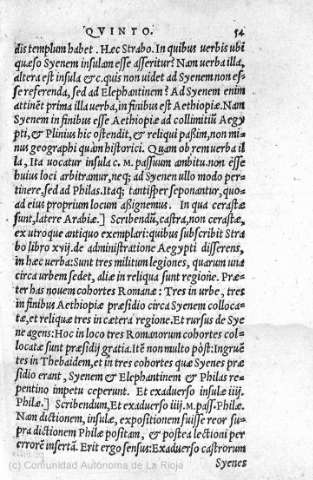 QVINTO. 54
dis templum habet. Hæc Strabo. In quibus verbis ubi
quæso Syenem insulam esse asseritur? Nam verba illa,
altera est insula & c. quis non uidet ad Syenem non es-
se referenda, sed ad Elephantinem? Ad Syenem enim
attinēt prima illa uerba, in finibus est Aethiopiæ. Nam
Syenem in finibus esse Aethiopiæ ad collimitiū Aegy
pti, & Plinius hic ostendit, & reliqui passim, non mi-
nus geographi quàm historici. Quam ob rem uerba il
la, Ita uocatur insula c. M. passuum ambitu. non esse
huius loci arbitramur, neq; ad Syenen ullo modo per-
tinere, sed ad Philas. Itaq; tantisper seponantur, quo-
ad eius proprium locum aßignemus. In qua cerastæ
sunt, latere Arabiæ.] Scribendū, castra, non cerastæ,
ex utroque antiquo exemplari: quibus subscribit Stra
bo libro xvij. de administratione Aegypti disserens,
in hæc uerba: Sunt tres militum legiones, quarum una
circa urbem sedet, aliæ in reliqua sunt regiōne. Præ-
ter has nouem cohortes Romanæ: Tres in urbe, tres
in finibus Aethiopiæ præsidio circa Syenem colloca-
tæ, et reliquæ tres in cætera regione. Et rursus de Sye
ne agens: Hoc in loco tres Romanorum cohortes col-
locatæ sunt præsidij gratia. Itē non multo pòst: Ingruē
tes in Thebaidem, et in tres cohortes quæ Syenes præ
sidio erant, Syenem & Elephantinem & Philas re-
pentino impetu ceperunt. Et exaduerso insulæ iiij.
Philæ.] Scribendum, Et exaduerso iiij. M. pass. Philæ.
Nam dictionem, insulæ, expositionem fuisse reor su-
pra dictionem Philæ positam, & postea lectioni per
errorē insertā. Erit ergo sensus: Exaduerso castrorum
Syenes
(c) Comunidad Autónoma de La Rioja